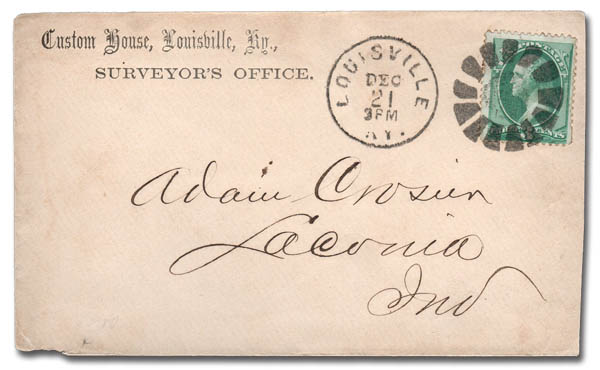 Custom House, Louisville, Ky.,
SURVEYOR'S OFFICE.
LOUISVILLE
DEC
21
3PM
KY.
POSTAGE
CENTS
Adam Crosier
Laconia
Ind